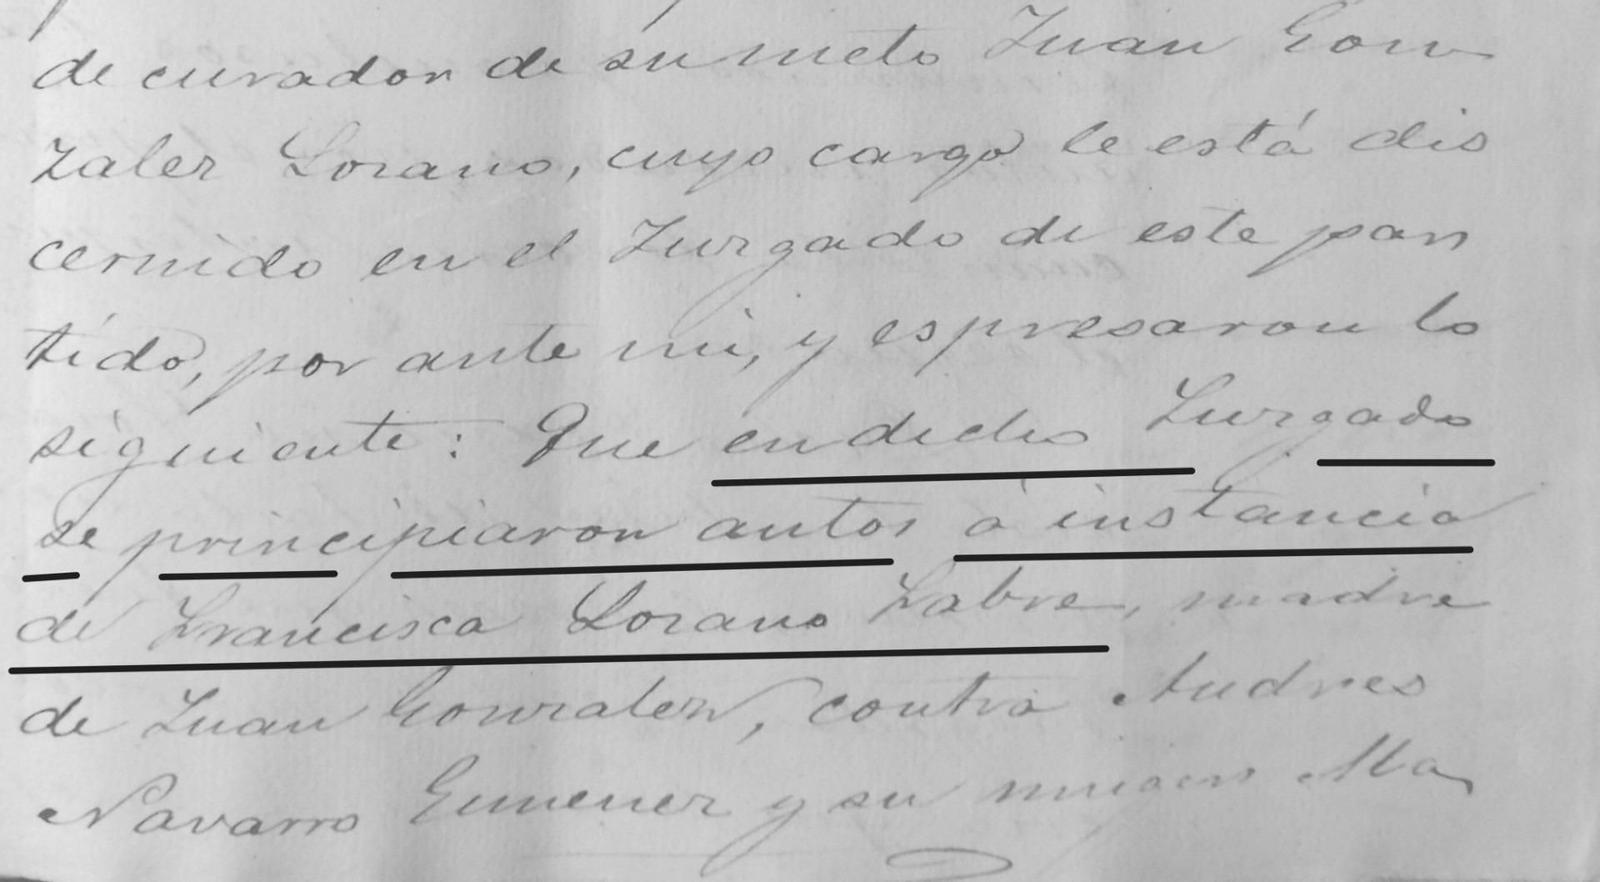 de curador de su nieto Juan Gon
zalez Lozano, cuyo cargo le está dis
cernido en el Juzgado de este par
tido, por ante mi, y espresaron lo
siguiente: Que en dicho Juzgado
se principiaron autos á instancia
de Francisca Lozano Labre, madre
de Juan Gonzalez, contra Andres
Navarro Gimenez y su muger Ma